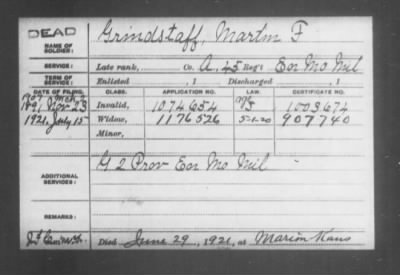 DEAD
NAME OF SOLDIER: Grindstaff, Martin F
SERVICE: Late rank, Co. A. 45 Reg't Enr Mo Mil
TERM OF SERVICE: Enlisted , 1 Discharged , 1
DATE OF FILING. CLASS. APPLICATION NO. LAW. CERTIFICATE NO.
1907 Mch 2
1891 Nov 23 Invalid, 1074654 1003674
1921, July 15 Widow, 1176526 5-1-20 907740
Minor,
ADDITIONAL SERVICES: G 2 Prov Enr Mo Mil
REMARKS:
Died June 29, 1921, at Marion Kans